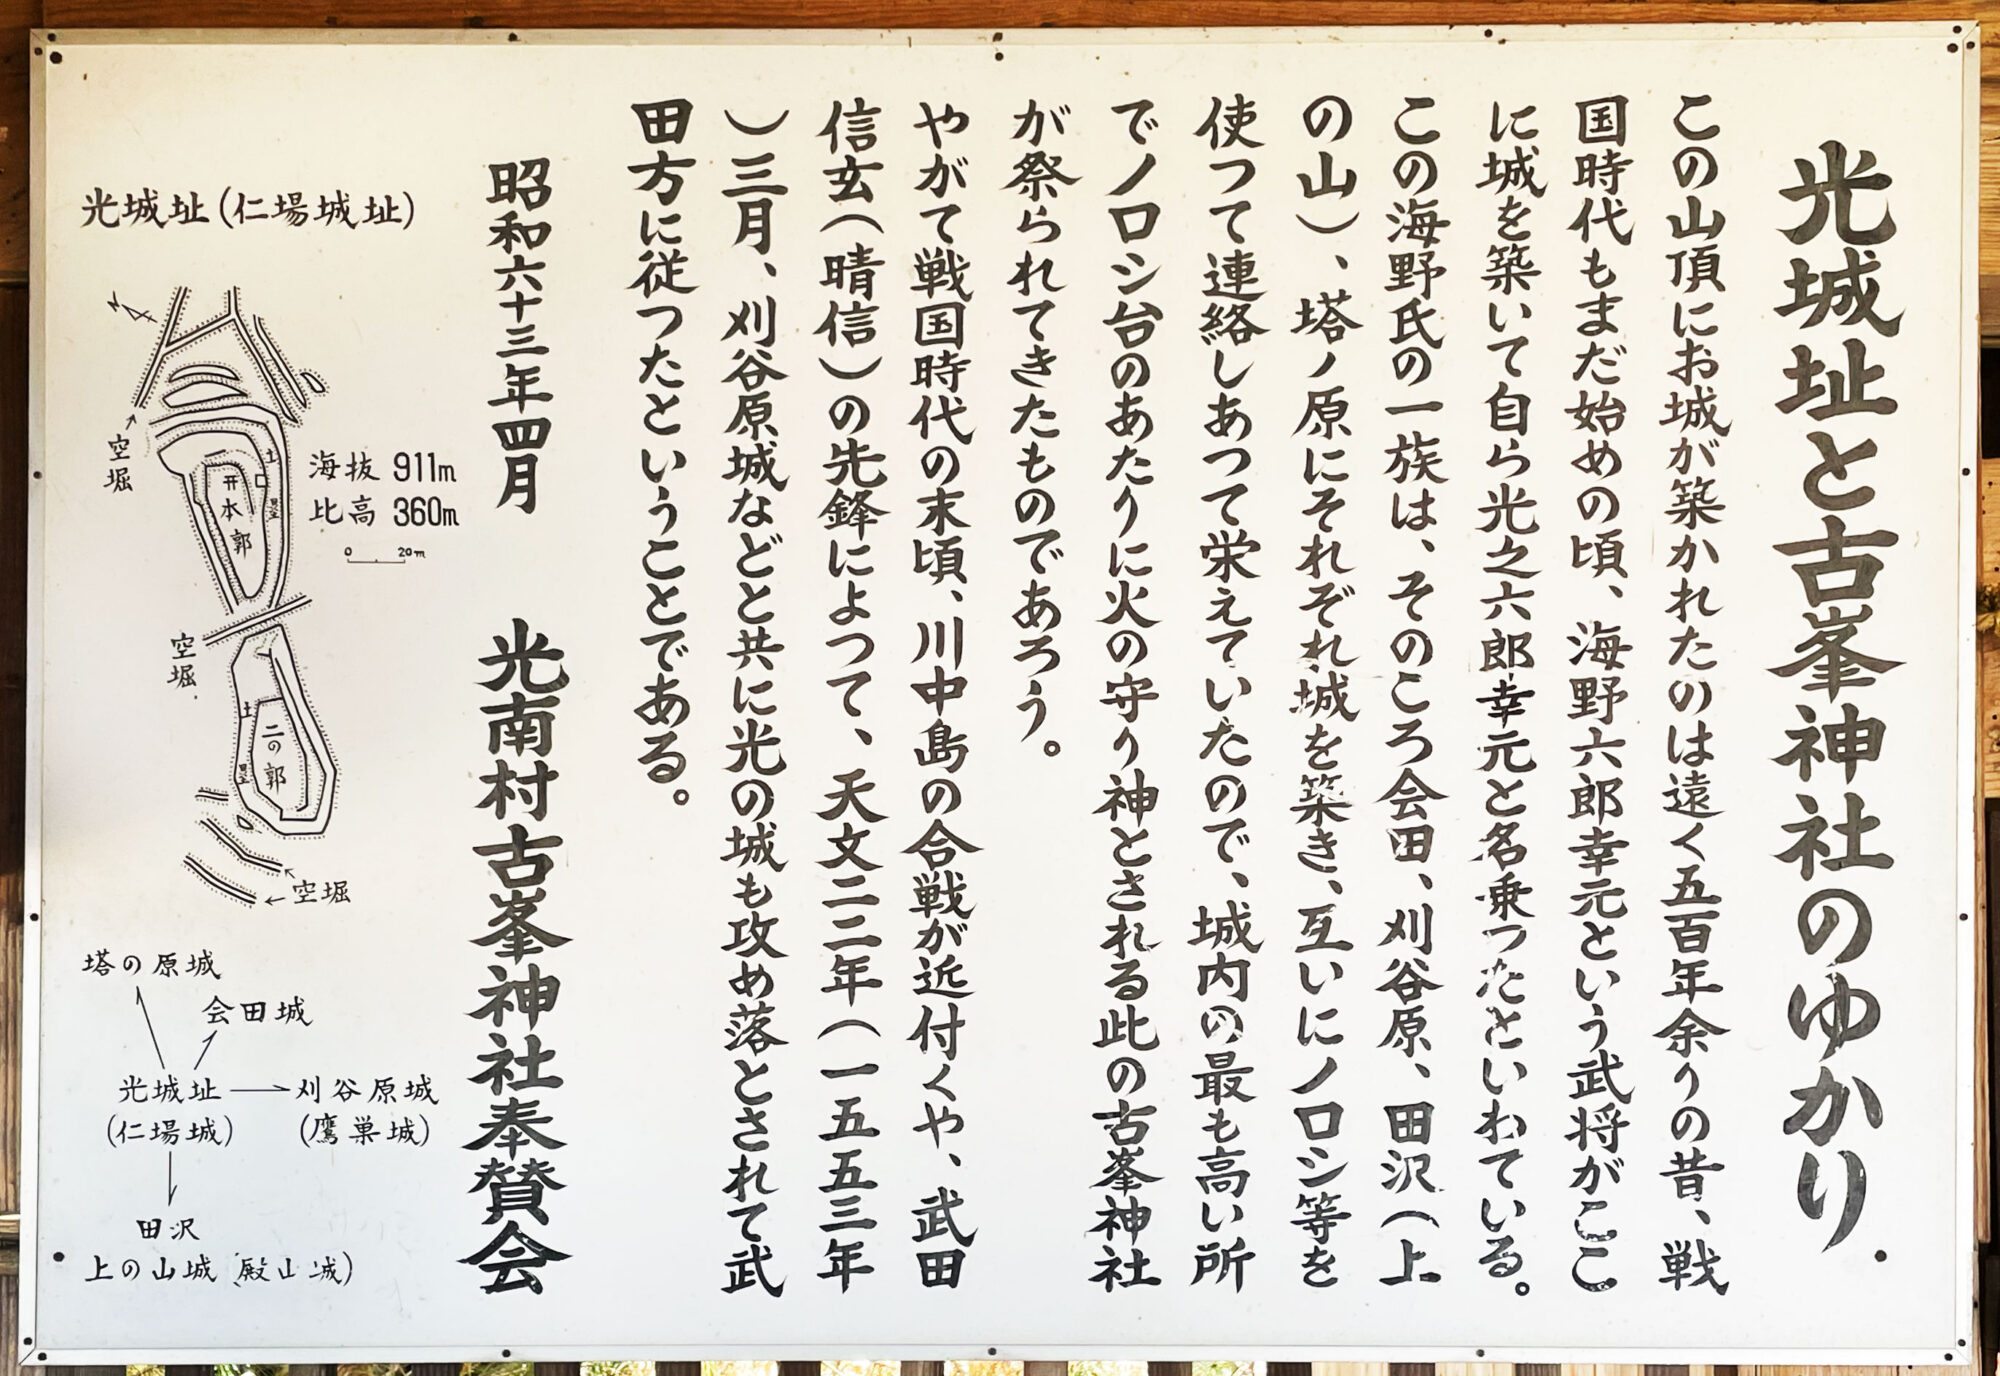 光城址と古峯神社のゆかり
この山頂にお城が築かれたのは遠く五百年余りの昔、戦
国時代もまだ始めの頃、海野六郎幸元という武将がここ
に城を築いて自ら光之六郎幸元と名乗つたといわている。
この海野氏の一族は、そのころ会田、刈谷原、田沢(上
の山)、塔ノ原にそれぞれ城を築き、互いにノロシ等を
使つて連絡しあつて栄えていたので、城内の最も高い所
でノロシ台のあたりに火の守り神とされる此の古峯神社
が祭られてきたものであろう。
やがて戦国時代の末頃、川中島の合戦が近付くや、武田
信玄(晴信)の先鋒によつて、天文二二年(一五五三年
)三月、刈谷原城などと共に光の城も攻め落とされて武
田方に従つたということである。
昭和六十三年四月
光南村古峯神社奉賛会
光城址(仁場城址)
空堀
海抜 911m
比高 360m
0 20m
土塁
本郭
空堀
土塁
二の郭
空堀
塔の原城
会田城
光城址
(仁場城)
刈谷原城
(鷹巣城)
田沢
上の山城 (殿山城)